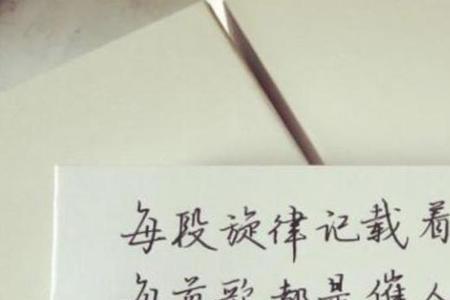 每段旋律记载着
每首歌都是催人